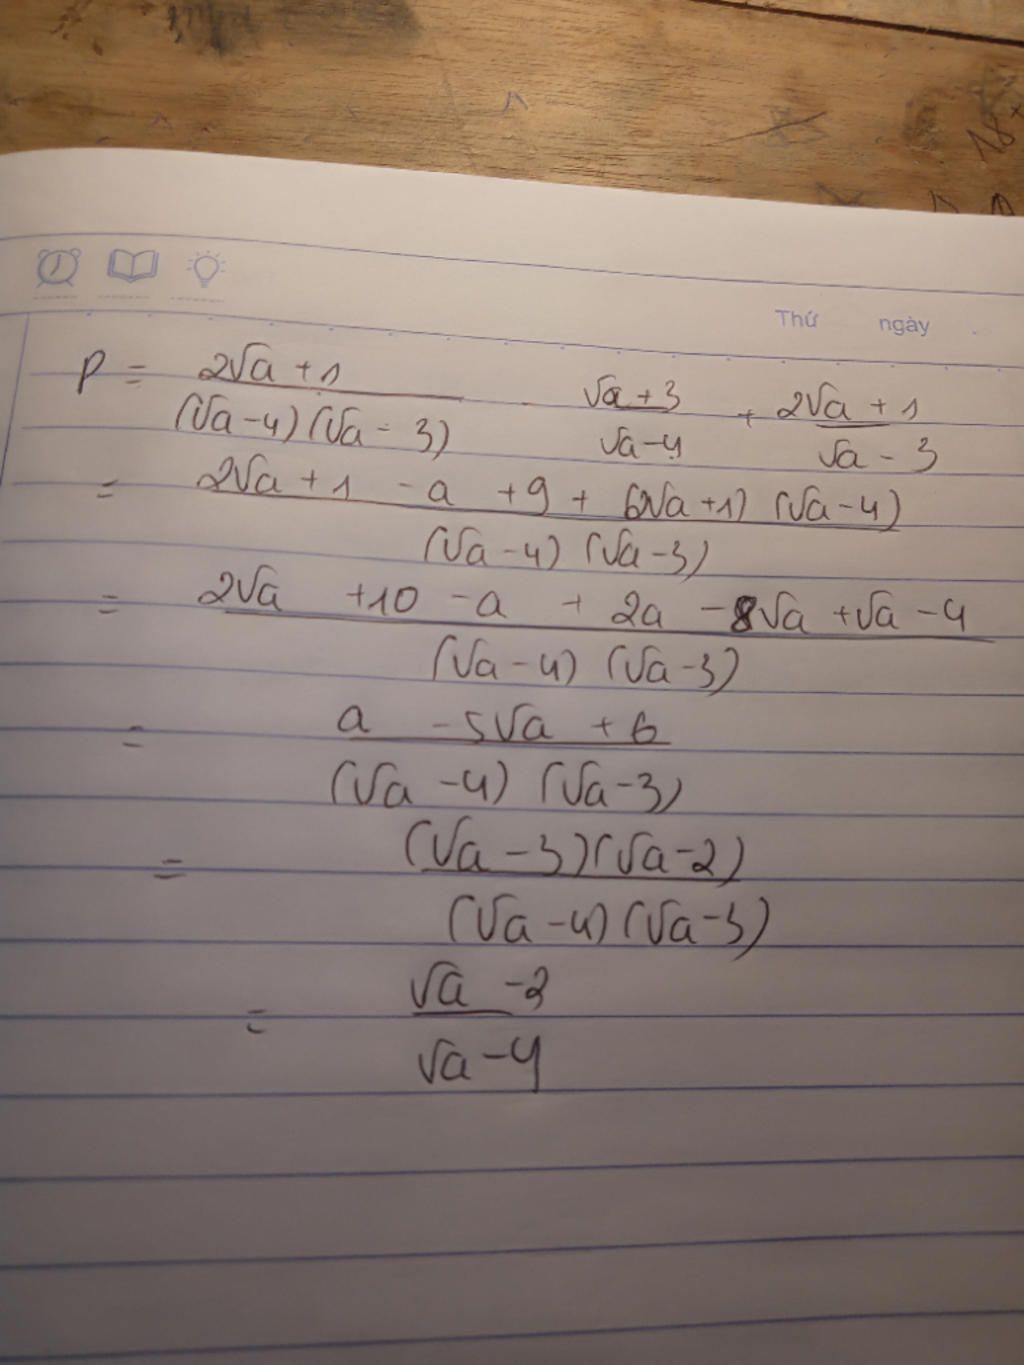 Thứ ngày
P = \frac{2√a + 1}{(√a - 4)(√a - 3)} - \frac{√a + 3}{√a - 4} + \frac{2√a + 1}{√a - 3}
= \frac{2√a + 1 - a + 9 + (2√a + 1)(√a - 4)}{(√a - 4)(√a - 3)}
= \frac{2√a + 10 - a + 2a - 8√a + √a - 4}{(√a - 4)(√a - 3)}
= \frac{a - 5√a + 6}{(√a - 4)(√a - 3)}
= \frac{(√a - 3)(√a - 2)}{(√a - 4)(√a - 3)}
= \frac{√a - 2}{√a - 4}